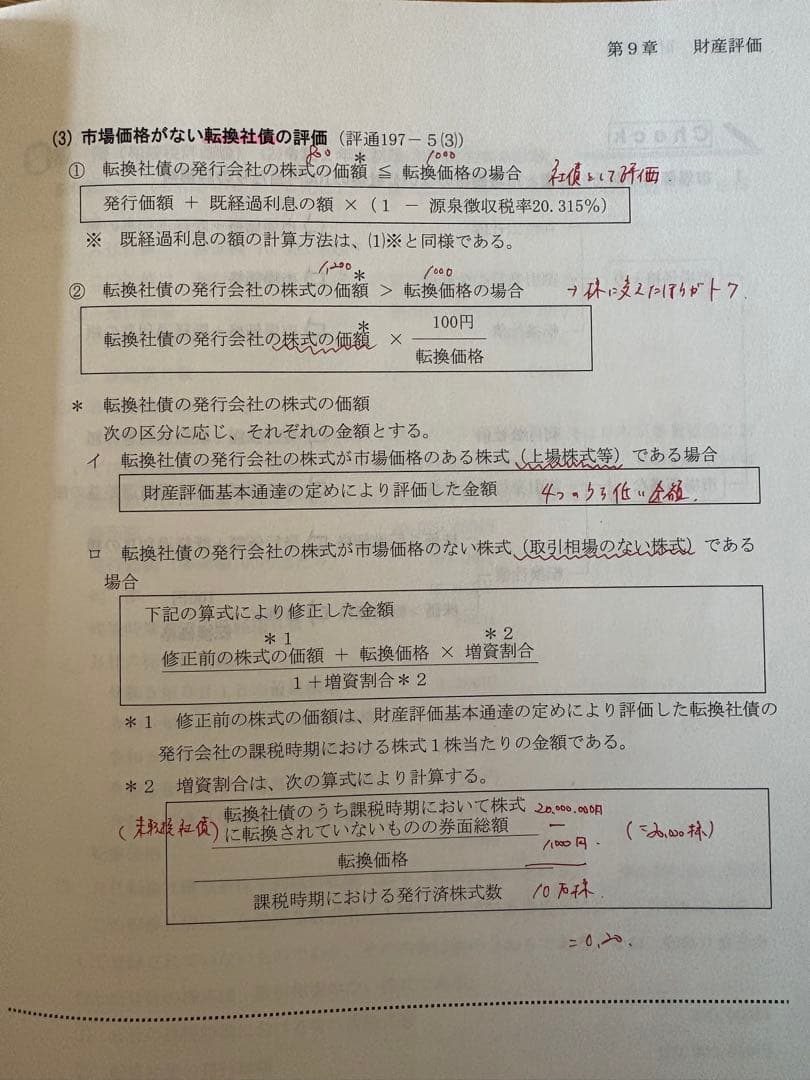 第９章　　財産評価
(3) 市場価格がない転換社債の評価（評通197－５(3)）
800　＊　1000
①　転換社債の発行会社の株式の価額 ≦ 転換価格の場合　社債として評価.
発行価額 ＋ 既経過利息の額 ×（１ － 源泉徴収税率20.315％）
※　既経過利息の額の計算方法は、(1)※と同様である。
1,200　＊　1000
②　転換社債の発行会社の株式の価額 ＞ 転換価格の場合　→株に変えたほうがトク.
＊　100円
転換社債の発行会社の株式の価額　×
転換価格
＊　転換社債の発行会社の株式の価額
次の区分に応じ、それぞれの金額とする。
イ　転換社債の発行会社の株式が市場価格のある株式（上場株式等）である場合
財産評価基本通達の定めにより評価した金額　4つのうち低い金額.
ロ　転換社債の発行会社の株式が市場価格のない株式（取引相場のない株式）である
場合
下記の算式により修正した金額
＊１　＊２
修正前の株式の価額 ＋ 転換価格 × 増資割合
１＋増資割合＊２
＊１　修正前の株式の価額は、財産評価基本通達の定めにより評価した転換社債の
発行会社の課税時期における株式１株当たりの金額である。
＊２　増資割合は、次の算式により計算する。
転換社債のうち課税時期において株式　20,000,000円
（未転換社債）に転換されていないものの券面総額　（＝20,000株）
転換価格　1,000円.
課税時期における発行済株式数　10万株.
＝0.20.